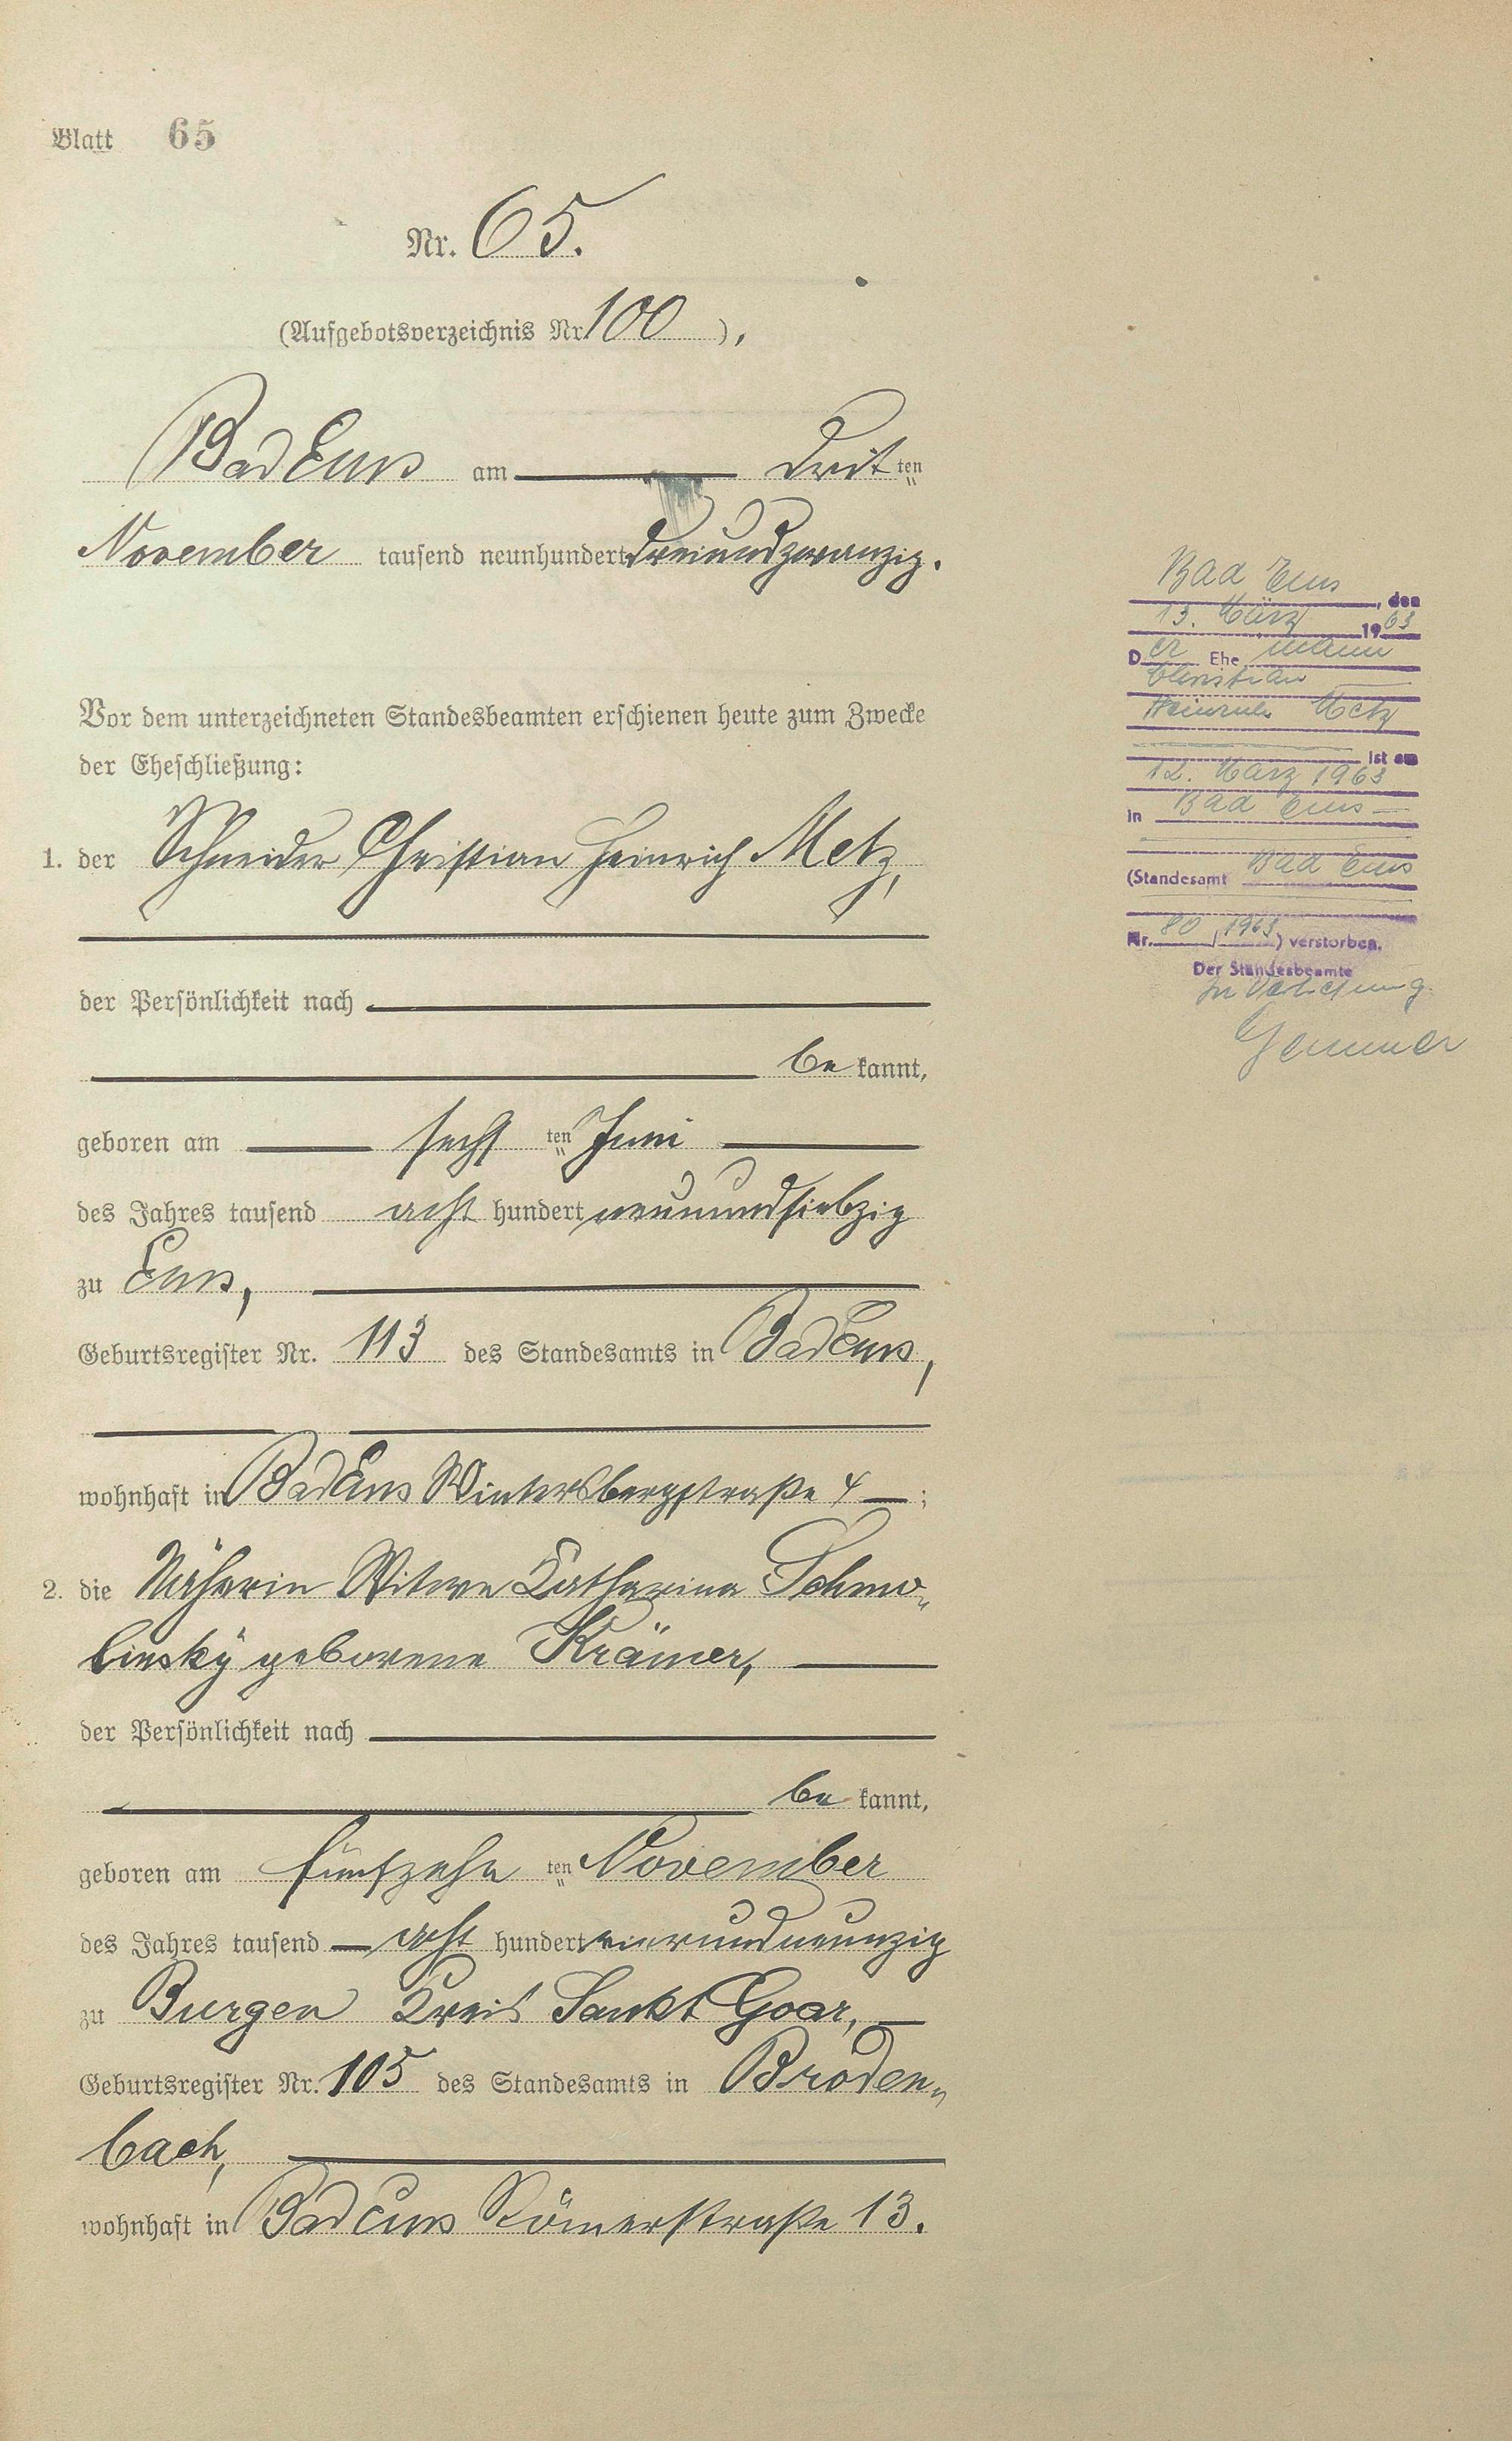 Blatt 65
Nr. 65.
(Aufgebotsverzeichnis Nr. 100 ),
Bad Ems am Drit ten
November tausend neunhundert dreiundzwanzig.
Vor dem unterzeichneten Standesbeamten erschienen heute zum Zwecke
der Eheschließung:
1. der Schneider Christian Heinrich Metz,
der Persönlichkeit nach
be kannt,
geboren am sechs ten Juni
des Jahres tausend acht hundert neunundsiebzig
zu Ems,
Geburtsregister Nr. 113 des Standesamts in Bad Ems,
wohnhaft in Bad Ems Wintersbergstraße 4 ;
2. die Näherin Witwe Katharina Schmo-
linsky geborene Krämer,
der Persönlichkeit nach
be kannt,
geboren am fünfzehn ten November
des Jahres tausend acht hundert vierundneunzig
zu Burgen Kreis Sankt Goar,
Geburtsregister Nr. 105 des Standesamts in Broden-
bach,
wohnhaft in Bad Ems Römerstraße 13.
Bad Ems, den
13. März 1963
Der Ehemann
Christian
Heinrich Metz
ist am
12. März 1963
in Bad Ems
(Standesamt Bad Ems
Nr. 80 / 1963) verstorben.
Der Standesbeamte
In Vertretung
Gemmer